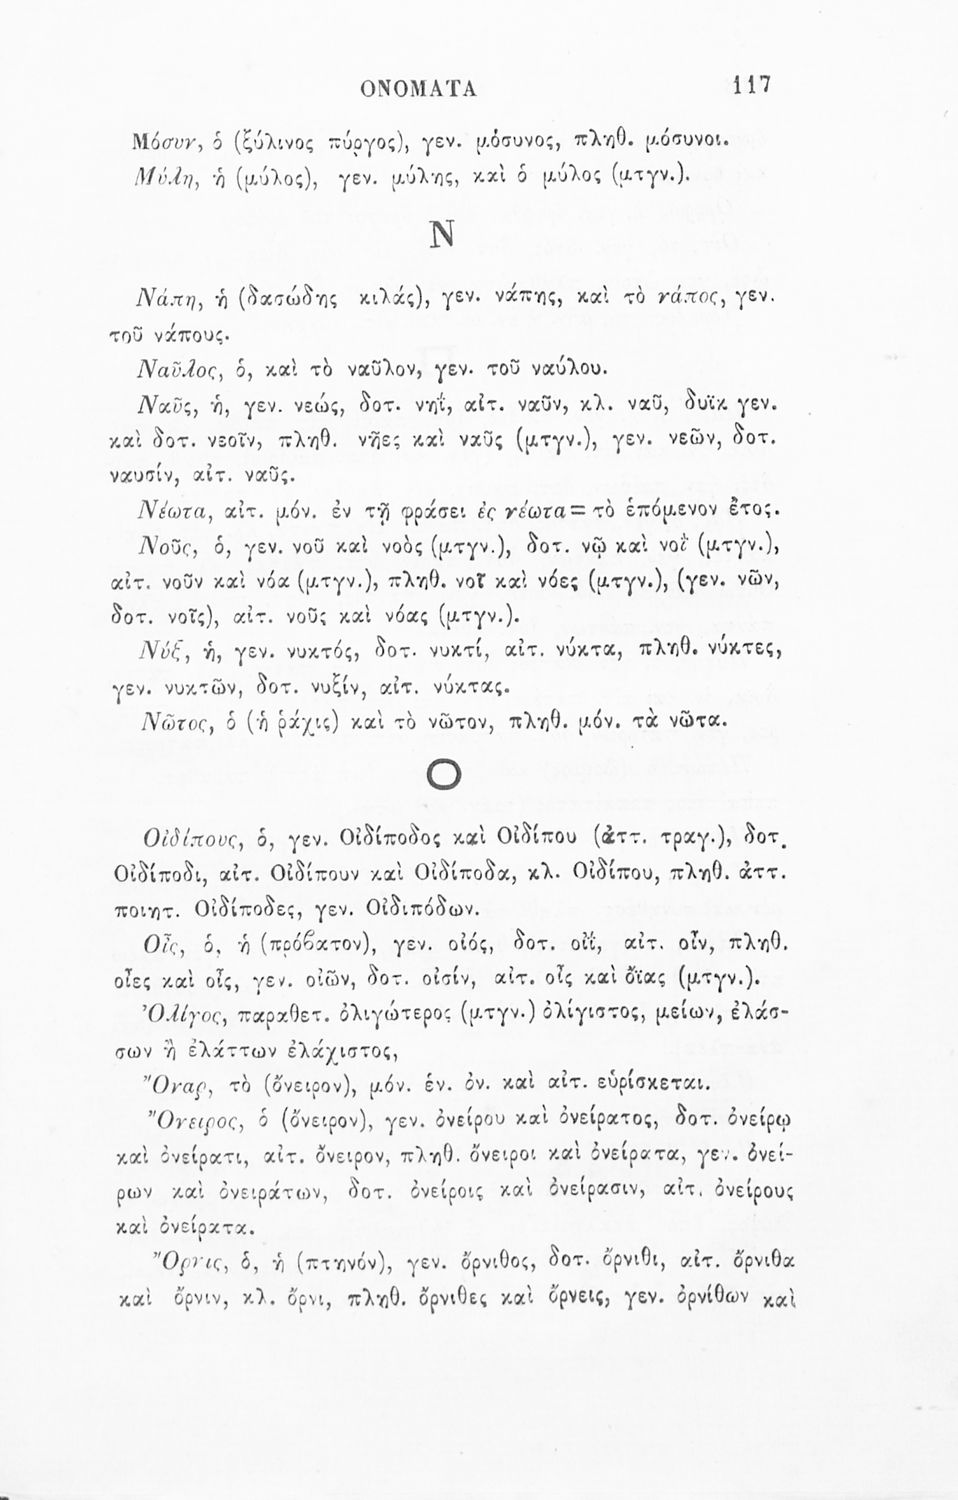 ΟΝΟΜΑΤΑ 117
Μόσυν, ὁ (ξύλινος πύργος), γεν. μόσυνος, πληθ. μόσυνοι.
Μύλη, ἡ (μύλος), γεν. μύλης, καὶ ὁ μύλος (μτγν.).
Ν
Νάπη, ἡ (δασώδης κιλάς), γεν. νάπης, καὶ τὸ νάπος, γεν.
τοῦ νάπους.
Ναῦλος, ὁ, καὶ τὸ ναῦλον, γεν. τοῦ ναύλου.
Ναῦς, ἡ, γεν. νεώς, δοτ. νηΐ, αἰτ. ναῦν, κλ. ναῦ, δυϊκ γεν.
καὶ δοτ. νεοῖν, πληθ. νῆες καὶ ναῦς (μτγν.), γεν. νεῶν, δοτ.
ναυσίν, αἰτ. ναῦς.
Νέωτα, αἰτ. μόν. ἐν τῇ φράσει ἐς νέωτα = τὸ ἑπόμενον ἔτος.
Νοῦς, ὁ, γεν. νοῦ καὶ νοὸς (μτγν.), δοτ. νῷ καὶ νοῒ (μτγν.),
αἰτ. νοῦν καὶ νόα (μτγν.), πληθ. νοῖ καὶ νόες (μτγν.), (γεν. νῶν,
δοτ. νοῖς), αἰτ. νοῦς καὶ νόας (μτγν.).
Νύξ, ἡ, γεν. νυκτός, δοτ. νυκτί, αἰτ. νύκτα, πληθ. νύκτες,
γεν. νυκτῶν, δοτ. νυξίν, αἰτ. νύκτας.
Νῶτος, ὁ (ἡ ῥάχις) καὶ τὸ νῶτον, πληθ. μόν. τὰ νῶτα.
Ο
Οἰδίπους, ὁ, γεν. Οἰδίποδος καὶ Οἰδίπου (ἀττ. τραγ.), δοτ.
Οἰδίποδι, αἰτ. Οἰδίπουν καὶ Οἰδίποδα, κλ. Οἰδίπου, πληθ. ἀττ.
ποιητ. Οἰδίποδες, γεν. Οἰδιπόδων.
Οἶς, ὁ, ἡ (πρόβατον), γεν. οἰός, δοτ. οἰΐ, αἰτ. οἶν, πληθ.
οἶες καὶ οἶς, γεν. οἰῶν, δοτ. οἰσίν, αἰτ. οἶς καὶ ὄϊας (μτγν.).
Ὀλίγος, παραθετ. ὀλιγώτερος (μτγν.) ὀλίγιστος, μείων, ἐλάσ-
σων ἢ ἐλάττων ἐλάχιστος,
Ὄναρ, τὸ (ὄνειρον), μόν. ἑν. ὀν. καὶ αἰτ. εὑρίσκεται.
Ὄνειρος, ὁ (ὄνειρον), γεν. ὀνείρου καὶ ὀνείρατος, δοτ. ὀνείρῳ
καὶ ὀνείρατι, αἰτ. ὄνειρον, πληθ. ὄνειροι καὶ ὀνείρατα, γεν. ὀνεί-
ρων καὶ ὀνειράτων, δοτ. ὀνείροις καὶ ὀνείρασιν, αἰτ. ὀνείρους
καὶ ὀνείρατα.
Ὄρνις, ὁ, ἡ (πτηνόν), γεν. ὄρνιθος, δοτ. ὄρνιθι, αἰτ. ὄρνιθα
καὶ ὄρνιν, κλ. ὄρνι, πληθ. ὄρνιθες καὶ ὄρνεις, γεν. ὀρνίθων καὶ